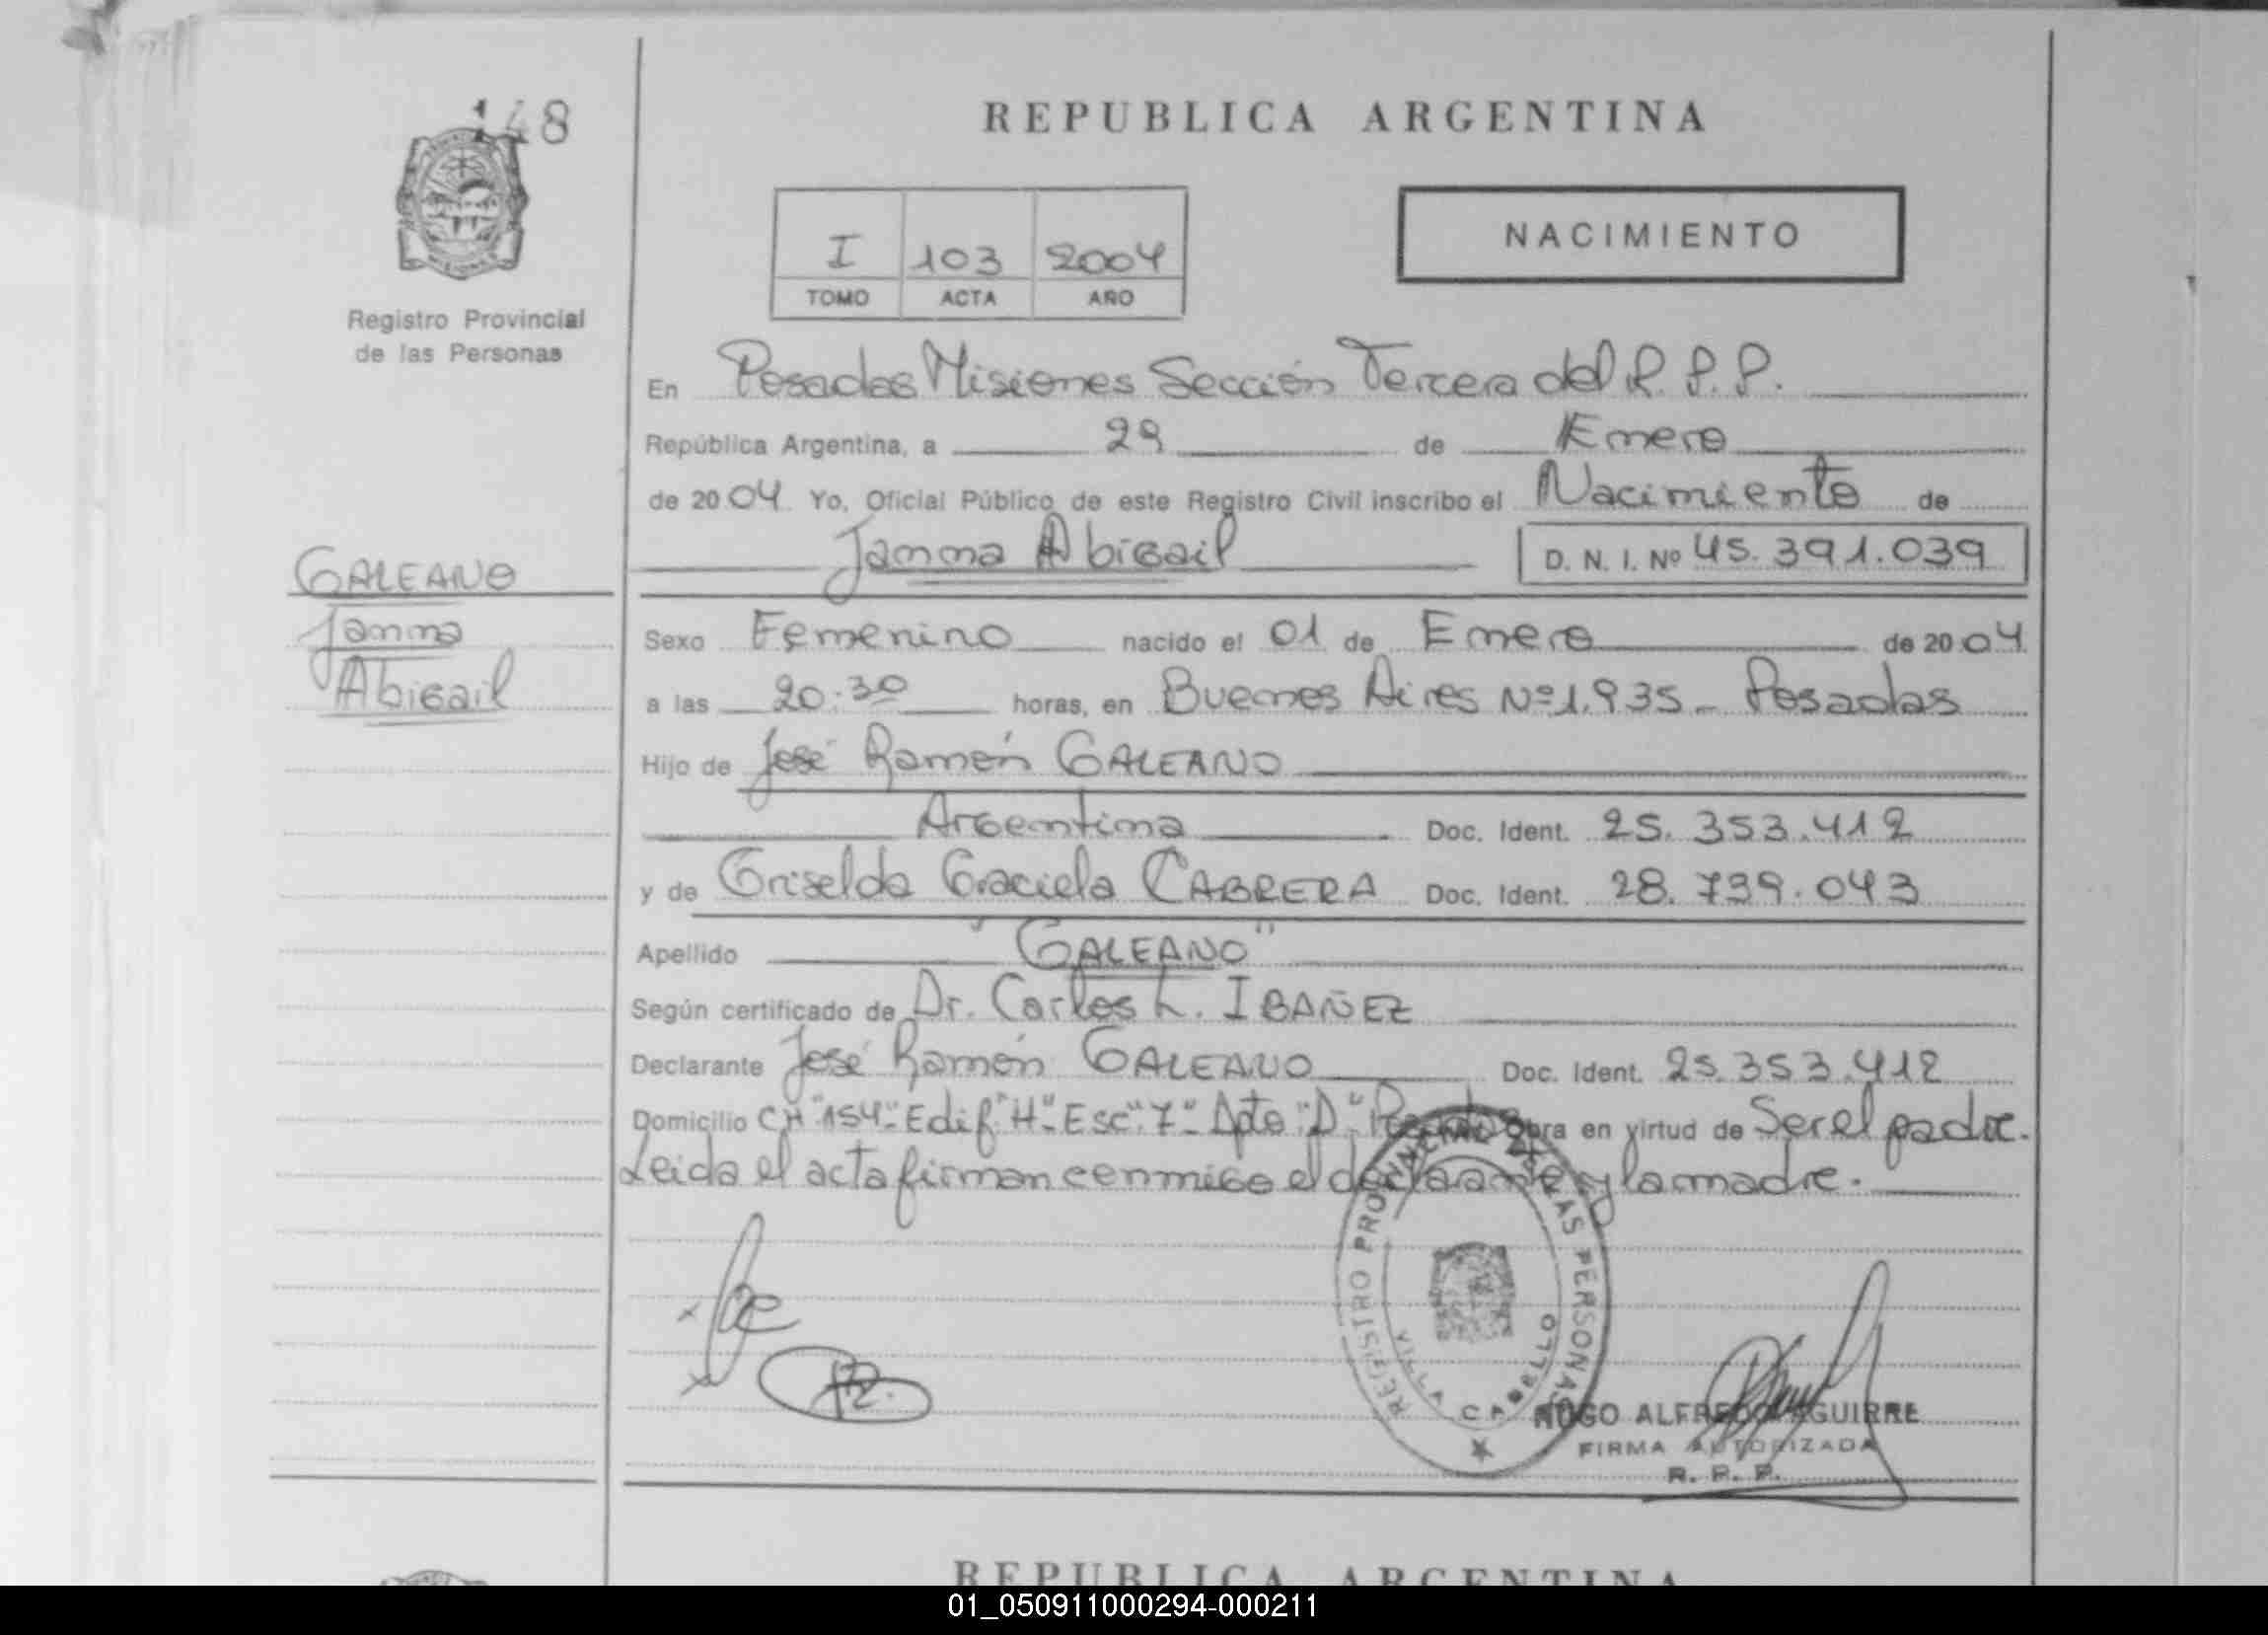 148
REPUBLICA ARGENTINA
I 103 2004
TOMO ACTA AÑO
NACIMIENTO
MISIONES
Registro Provincial
de las Personas
En Posadas Misiones Sección Tercera del R. P. P.
República Argentina, a 29 de Enero
de 2004 Yo, Oficial Público de este Registro Civil inscribo el Nacimiento de
Janna Abigail D. N. I. Nº 45.391.039
GALEANO
Janna
Abigail
Sexo Femenino nacido el 01 de Enero de 2004
a las 20:30 horas, en Buenos Aires Nº 1.935 - Posadas
Hijo de José Ramón GALEANO
Argentina Doc. Ident. 25.353.412
y de Griselda Graciela CABRERA Doc. Ident. 28.739.043
Apellido "GALEANO"
Según certificado de Dr. Carlos L. IBAÑEZ
Declarante José Ramón GALEANO Doc. Ident. 25.353.412
Domicilio CH "154" Edif. "H" Esc. "7" Dpto "D" Posadas Obra en virtud de Ser el padre.
Leida el acta firman conmigo el declarante y la madre.
REGISTRO PROVINCIAL DE LAS PERSONAS
VILLA CABELLO
HUGO ALFREDO AGUIRRE
FIRMA AUTORIZADA
R. P. P.
REPUBLICA ARGENTINA
01_050911000294-000211